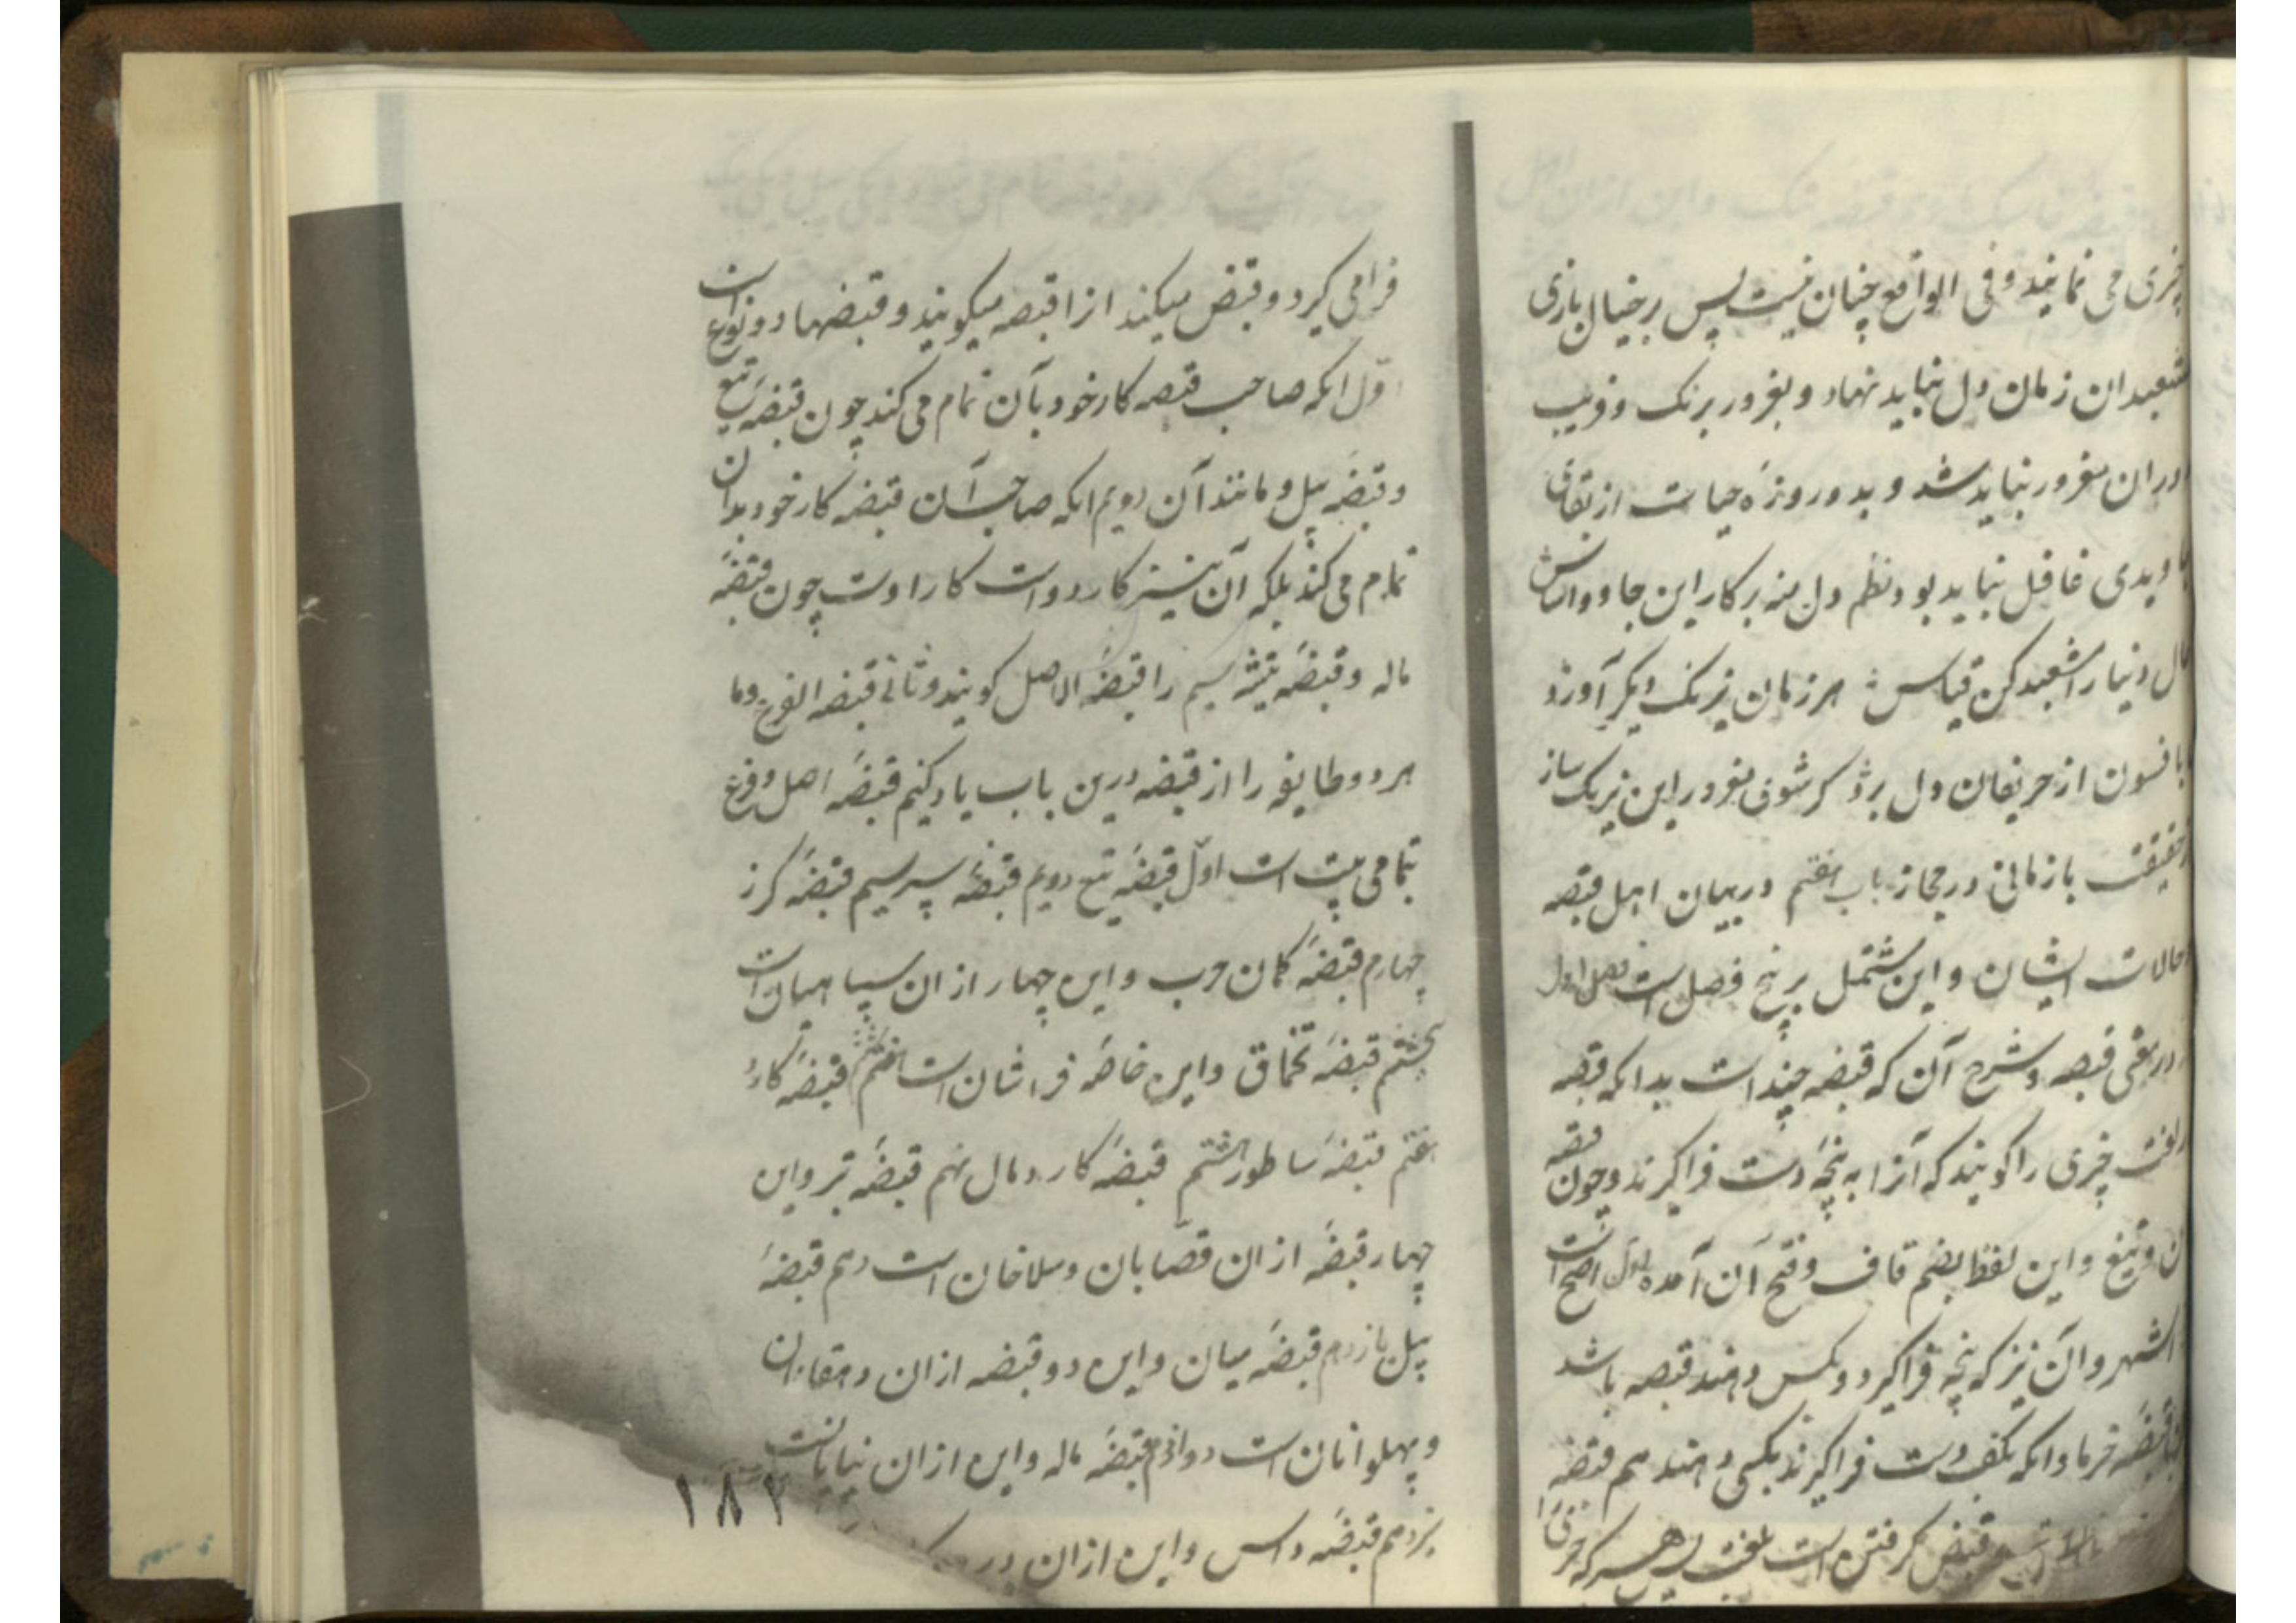 چیزی می نمایند و فی الواقع چنان نیست پس بر خیال بازی
مشعبدان زمان دل نباید نهاد و بغرور برنک و فریب
دوران مغرور نباید شد و بدو روزهٔ حیات از بقای
جاویدی غافل نباید بود نظم دل منه بر کار این جادو اساس
حال دنیا را مشعبد کن قیاس هر زمان نیرنک دیکر آورد
با فسون از حریفان دل برد کر شوی مغرور این نیرنک ساز
از حقیقت بازمانی در مجاز باب هفتم در بیان اهل قبضه
و حالات ایشان و این مشتمل بر پنج فصل است فصل اول
در معنی قبضه و شرح آن که قبضه چند است بدانکه قبضه
در لغت چیزی را کویند که آنرا به پنجهٔ دست فرا کیرند و چون قبضهٔ
و تیغ و این لفظ بضم قاف و فتح آن آمده اول اصح است
اشهر و آن نیز که پنجه فرا کیرد و بکس دهند قبضه باشد
قبضهٔ خرما و آنکه بکف دست فرا کیرند بکسی دهند هم قبضه
قبض کرفتن است بلغت پس هر که چیزی را
فرا می کیرد و قبض میکند از آن قبضه میکویند و قبضها دو نوع است
اول انکه صاحب قبضه کار خود بآن تمام می کند چون قبضهٔ تیغ
و قبضهٔ بیل و مانند آن دویم انکه صاحب آن قبضه کار خود بدان
تمام می کند بلکه آن نیز کار دو است کار اوست چون قبضهٔ
ماله و قبضهٔ تیشه سیم را قبضهٔ الاصل کویند و ثانی قبضه الفرع و ما
هر دو طایفه را از قبضه درین باب یاد کنیم قبضهٔ اصل و فرع
تمامی بیست است اول قبضهٔ تیغ دویم قبضهٔ سپر سیم قبضهٔ کرز
چهارم قبضهٔ کمان حرب و این چهار از ان سپاهیان است
پنجم قبضهٔ تخماق و این خاصهٔ فراشان است ششم قبضهٔ کارد
هفتم قبضهٔ ساطور هشتم قبضهٔ کارد مال نهم قبضهٔ تبر و این
چهار قبضه از ان قصابان و سلاخان است دهم قبضهٔ
بیل یازدهم قبضهٔ میان و این دو قبضه از ان دهقانان
و پهلوانان است دوازدهم قبضهٔ ماله و این از ان بنایانست
سیزدهم قبضهٔ داس و این از ان
۱۸۲